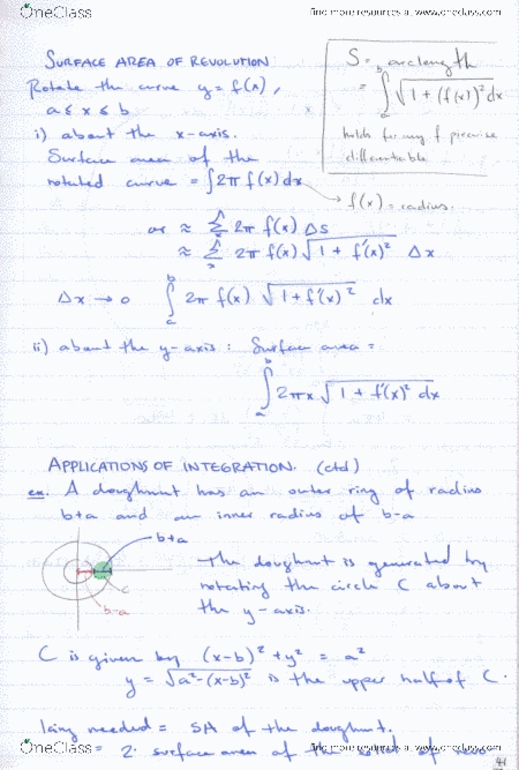 OneClass find more resources at www.oneclass.com
SURFACE AREA OF REVOLUTION
Rotate the curve y = f(x),
a ≤ x ≤ b
i) about the x-axis.
Surface area of the
rotated curve = ∫2π f(x) dx
S = arclength
= ∫_a^b √(1 + (f'(x))² dx
holds for any f piecewise
differentiable
→ f(x) = radius.
or ≈ Σ 2π f(x) Δs
≈ Σ 2π f(x) √(1 + f'(x)²) Δx
Δx → 0 ∫_a^b 2π f(x) √(1 + f'(x)²) dx
ii) about the y-axis : Surface area =
∫_a^b 2πx √(1 + f'(x)² dx
APPLICATIONS OF INTEGRATION. (ctd)
ex. A doughnut has an outer ring of radius
b+a and an inner radius of b-a
b+a
C
b-a
The doughnut is generated by
rotating the circle C about
the y-axis.
C is given by (x-b)² + y² = a²
y = √(a²-(x-b)²) is the upper half of C.
Icing needed = SA of the doughnut.
= 2· surface area of the of
OneClass find more resources at www.oneclass.com